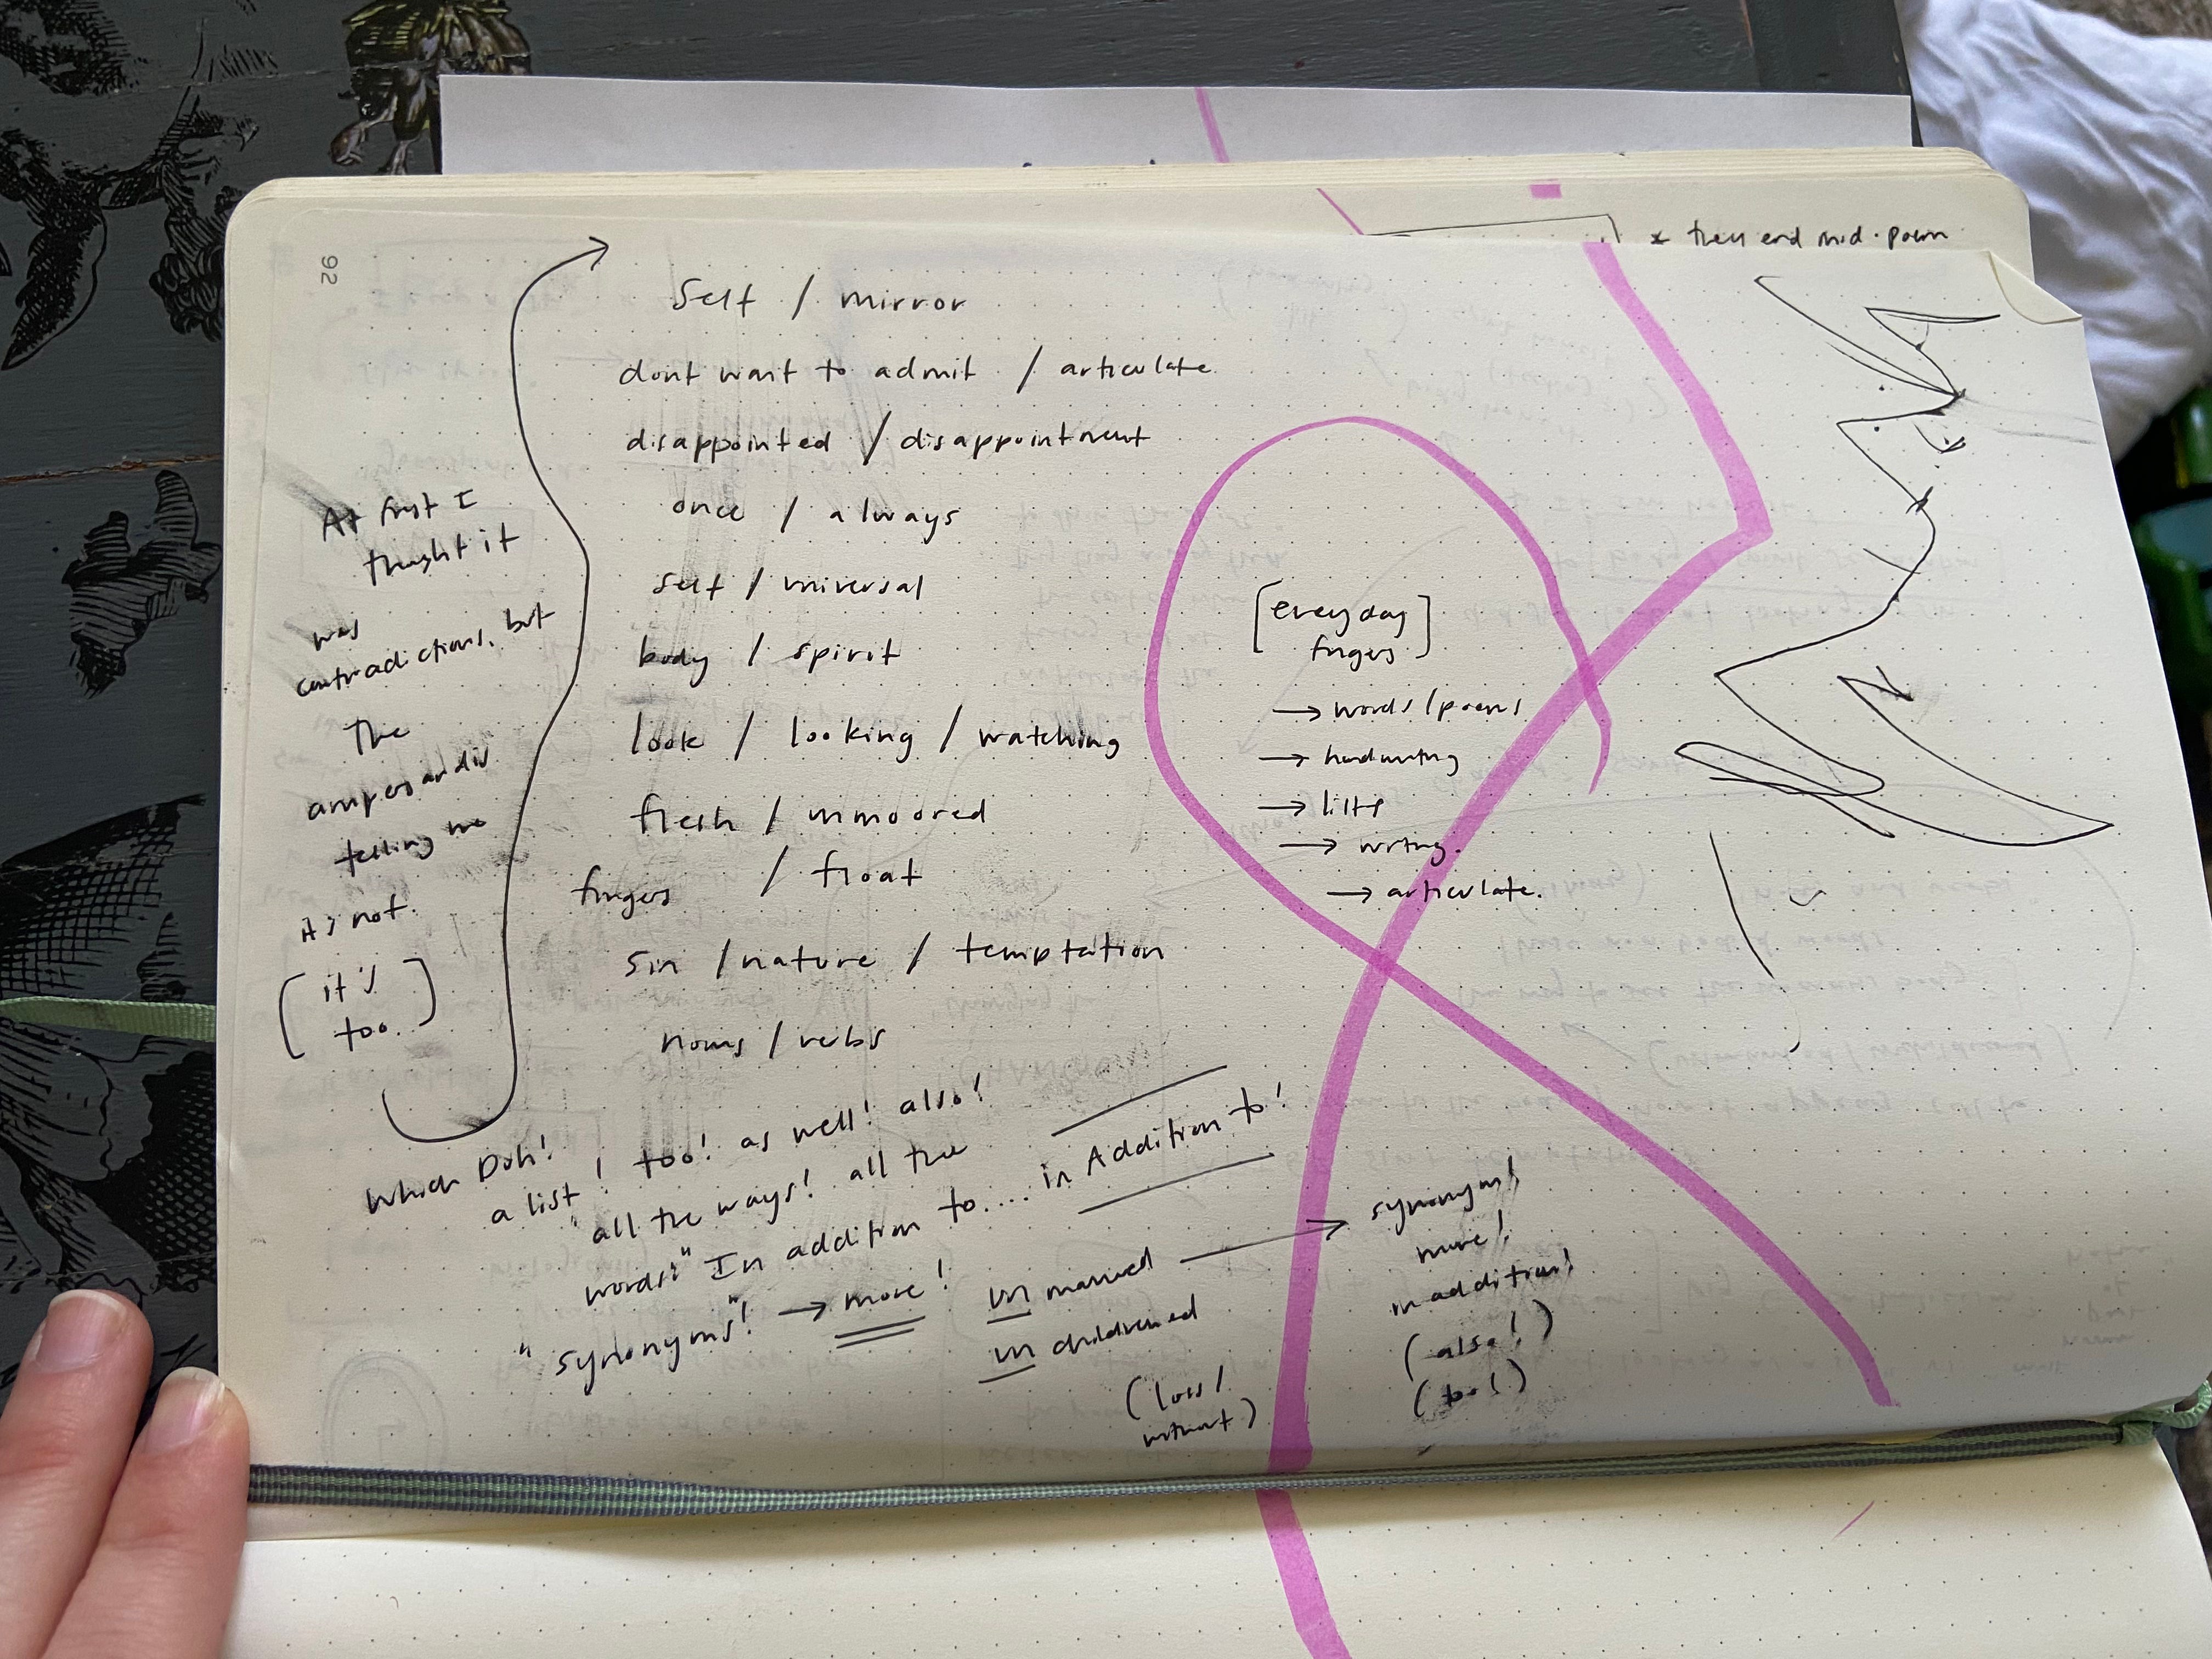 92
* they end mid-poem
self / mirror
dont want to admit / articulate
disappointed / disappointment
once / always
self / universal
body / spirit
look / looking / watching
flesh / unmoored
fingers / float
sin / nature / temptation
nouns / verbs
At first I
thought it
was
contradictions, but
The
ampersand is
telling me
it's not.
[it's
too.]
[everyday]
fingers
→ words / poems
→ handwriting
→ lists
→ writing.
→ articulate.
Which Duh!
a list! too! as well! also!
"all the ways! all the
words!" In addition to.... in Addition to!
"synonyms"! → more!
unmarried →
unchildrened
(loss /
without)
synonyms!
more!
in addition!
(also!)
(too!)